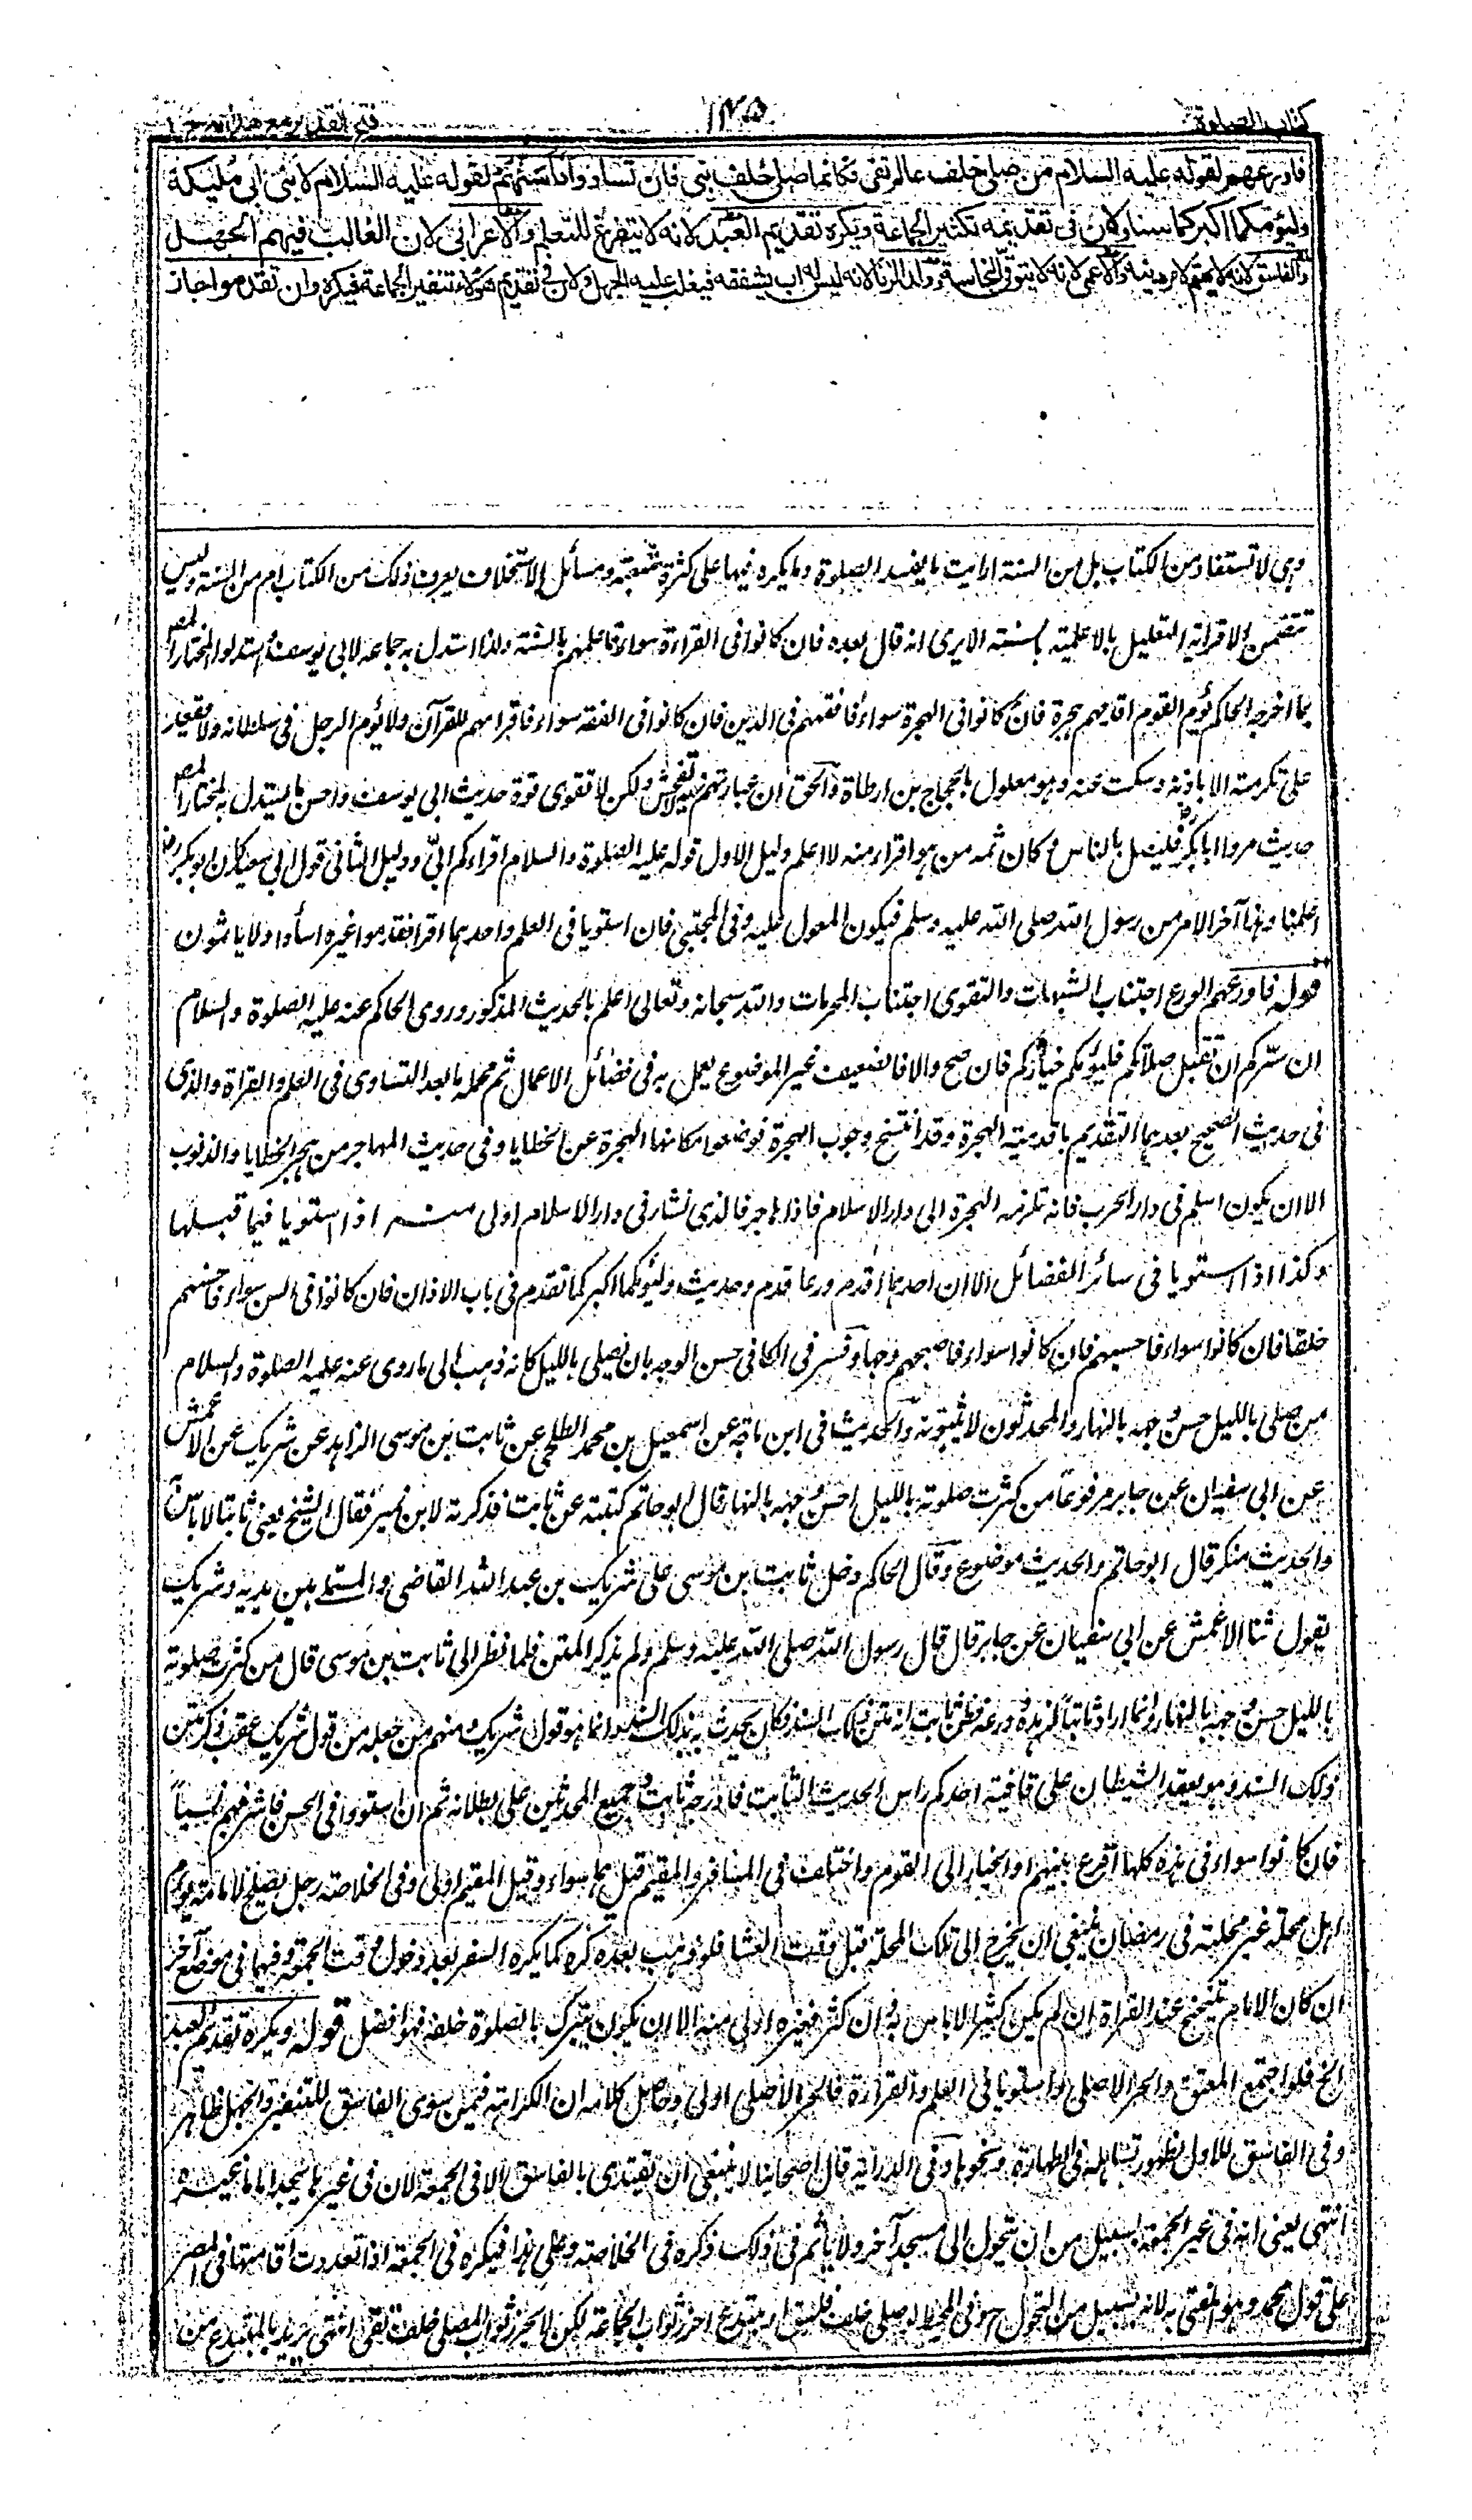 كتاب الصلوة
١٤٥
فتح القدير مع هداية ج ١
فاورعهم لقوله عليه السلام من صلى خلف عالم تقى فكانما صلى خلف نبى فان تساووا فاسنهم لقوله عليه السلام لابنى ابى مليكة
وليؤمكما اكبركما سنا ولان فى تقديمه تكثير الجماعة ويكره تقديم العبد لانه لا يتفرغ للتعلم والاعرابى لان الغالب فيهم الجهل
والفاسق لانه لا يهتم لامر دينه والاعمى لانه لا يتوقى النجاسة وولد الزنا لانه ليس له اب يشفقه فيغلب عليه الجهل ولان فى تقديم هؤلاء تنفير الجماعة فيكره وان تقدموا جاز
وهى لا تستفاد من الكتاب بل من السنة ارايت ما يفسد الصلوة وما يكره فيها على كثرة شعبه ومسائل الاستخلاف يعرف ذلك من الكتاب ام من السنة وليس
تتضمن الاقرائية التعليل بالاعلمية بالسنة الا يرى انه قال بعده فان كانوا فى القراءة سواء فاعلمهم بالسنة ولذا استدل به جماعه لابى يوسف واستدلوا لمختار المصـ
بما اخرجه الحاكم يؤم القوم اقدمهم هجرة فان كانوا فى الهجرة سواء فافقههم فى الدين فان كانوا فى الفقه سواء فاقراهم للقرآن ولا يؤم الرجل فى سلطانه ولا يقعد
على تكرمته الا باذنه وسكت عنه وهو معلول بالحجاج بن ارطاة والحق ان عبارتهم فيه لا تفحش ولكن لا تقوى قوة حديث ابى يوسف واحسن ما يستدل به لمختار المصـ
حديث مروا ابا بكر فليصل بالناس وكان ثمه من هو اقراء منه لا اعلم دليل الاول قوله عليه الصلوة والسلام اقراءكم ابىّ ودليل الثانى قول ابى سعيد كان ابو بكر رضـ
اعلمنا وهذا آخر الامر من رسول الله صلى الله عليه وسلم فيكون المعول عليه وفى المجتبى فان استويا فى العلم واحدهما اقرا فقدموا غيره اساؤا ولا ياثمون
قوله فاورعهم الورع اجتناب الشبهات والتقوى اجتناب المحرمات والله سبحانه وتعالى اعلم بالحديث المذكور وروى الحاكم عنه عليه الصلوة والسلام
ان سرّكم ان تقبل صلاتكم فليؤمكم خياركم فان صح والا فالضعيف غير الموضوع يعمل به فى فضائل الاعمال ثم محمله ما بعد التساوى فى العلم والقراة والذى
فى حديث الصحيح بعدهما التقديم باقدمية الهجرة وقد انتسخ وجوب الهجرة فوضعوا مكانها الهجرة عن الخطايا وفى حديث المهاجر من هجر الخطايا والذنوب
الا ان يكون اسلم فى دار الحرب فانه تلزمه الهجرة الى دار الاسلام فاذا هاجر فالذى نشأ فى دار الاسلام اولى منه اذا استويا فيما قبلها
وكذا اذا استويا فى سائر الفضائل الا ان احدهما اقدم ورعا قدم وحديث وليؤمكما اكبركما تقدم فى باب الاذان فان كانوا فى السن سواء فاحسنهم
خلقا فان كانوا سواء فاحسبهم فان كانوا سواء فاصبحهم وجها وفسر فى الكافى حسن الوجه بان يصلى بالليل كانه ذهب الى ما روى عنه عليه الصلوة والسلام
من صلى بالليل حسن وجهه بالنهار والمحدثون لا يثبتونه والحديث فى ابن ماجة عن اسمعيل بن محمد الطلحى عن ثابت بن موسى الزاهد عن شريك عن الاعمش
عن ابى سفيان عن جابر مرفوعا من كثرت صلوته بالليل حسن وجهه بالنهار قال ابو حاتم كتبته عن ثابت فذكرته لابن نمير فقال الشيخ يعنى ثابتا لا باس به
والحديث منكر قال ابو حاتم والحديث موضوع وقال الحاكم دخل ثابت بن موسى على شريك بن عبد الله القاضى والمستملى بين يديه وشريك
يقول ثنا الاعمش عن ابى سفيان عن جابر قال قال رسول الله صلى الله عليه وسلم ولم يذكر المتن فلما نظر الى ثابت بن موسى قال من كثرت صلوته
بالليل حسن وجهه بالنهار وانما اراد ثابتا لزهده وورعه فظن ثابت انه متن ذلك السند فكان يحدث به بذلك السند وانما هو قول شريك ومنهم من جعله من قول شريك عقب ذكر متن
ذلك السند وهو يعقد الشيطان على قافية احدكم راس الحديث الثابت فادرجه ثابت وجميع المحدثين على بطلانه ثم ان استووا فى الحسن فاشرفهم نسبا
فان كانوا سواء فى هذه كلها اقرع بينهم او الخيار الى القوم واختلف فى المسافر والمقيم قيل هما سواء وقيل المقيم اولى وفى الخلاصة رجل يصلح للامامة يؤم
اهل محلة غير محلته فى رمضان ينبغى ان يخرج الى تلك المحلة قبل وقت العشا فلو ذهب بعده كره كما يكره السفر بعد دخول وقت الجمعة وفيها فى موضع آخر
ان كان الامام يتنحنح عند القراة ان لم يكن كثيرا لا باس به وان كثر فغيره اولى منه الا ان يكون يتبرك بالصلوة خلفه فهو افضل قوله ويكره تقديم العبد
الخ فلو اجتمع المعتق والحر الاصلى واستويا فى العلم والقراءة فالحر الاصلى اولى وحاصل كلامه ان الكراهة فيمن سوى الفاسق للتنفير والجهل ظاهر
وفى الفاسق للاول لظهور تساهله فى الطهارة ونحوها وفى الدراية قال اصحابنا لا ينبغى ان يقتدى بالفاسق الا فى الجمعة لان فى غيرها يجد اماما غيره
انتهى يعنى انه فى غير الجمعة بسبيل من ان يتحول الى مسجد آخر ولا ياثم فى ذلك ذكره فى الخلاصة وعلى هذا فيكره فى الجمعة اذا تعددت اقامتها فى المصر
على قول محمد وهو المفتى به لانه بسبيل من التحول ح وفى المحيط لو صلى خلف فاسق او مبتدع احرز ثواب الجماعة لكن لا يحرز ثواب المصلى خلف تقى انتهى يريد بالمبتدع من